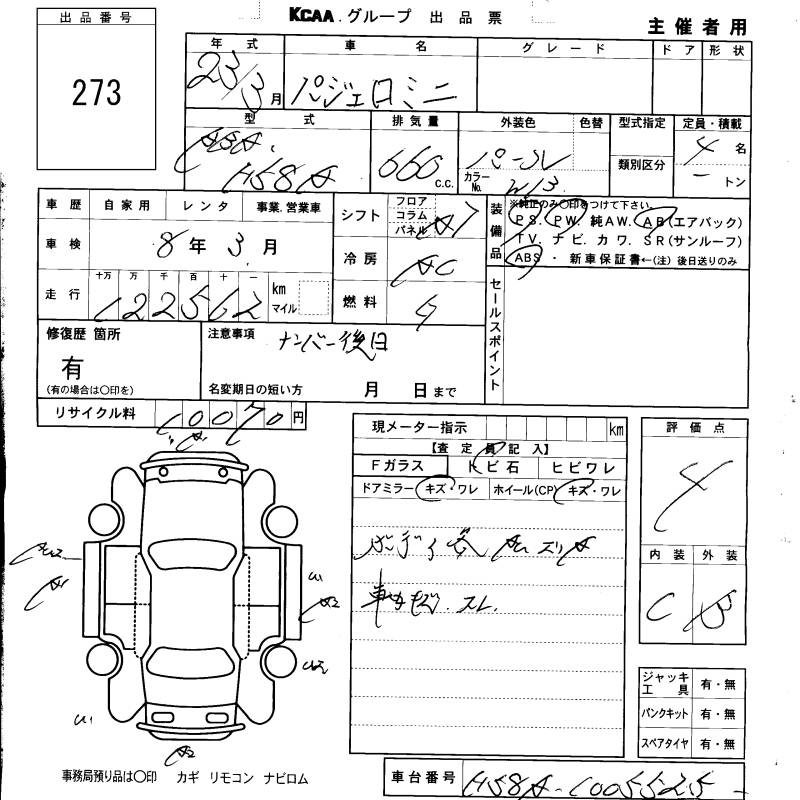 出品番号
273
KCAA.グループ 出品票
主催者用
年式 車名 グレード ドア 形状
23/3月 パジェロミニ
型式 排気量 外装色 色替 型式指定 定員・積載
ABA- H58A 660 c.c. パール カラーNo. W13 類別区分 4名 - トン
車歴 自家用 レンタ 事業.営業車
シフト フロア コラム パネル A7
装備品 ※純正のみ○印をつけて下さい。
PS. PW. 純AW. AB(エアバック)
TV. ナビ. カワ. SR(サンルーフ)
ABS ・ 新車保証書←(注)後日送りのみ
車検 8年3月
冷房 AC
走行 十万 万 千 百 十 一
122562 km マイル
燃料 G
セールスポイント
修復歴 箇所
有
(有の場合は○印を)
注意事項 ナンバー後日
名変期日の短い方 月 日まで
リサイクル料 10070円
現メーター指示 km
【査定員記入】
Fガラス トビ石 ヒビワレ
ドアミラー キズ・ワレ ホイール(CP) キズ・ワレ
車内キズ.スレ
評価点
4
内装 外装
C B
A2
U1
A2
U1
A2
ジャッキ工具 有・無
パンクキット 有・無
スペアタイヤ 有・無
事務局預り品は○印 カギ リモコン ナビロム
車台番号 H58A-1005525